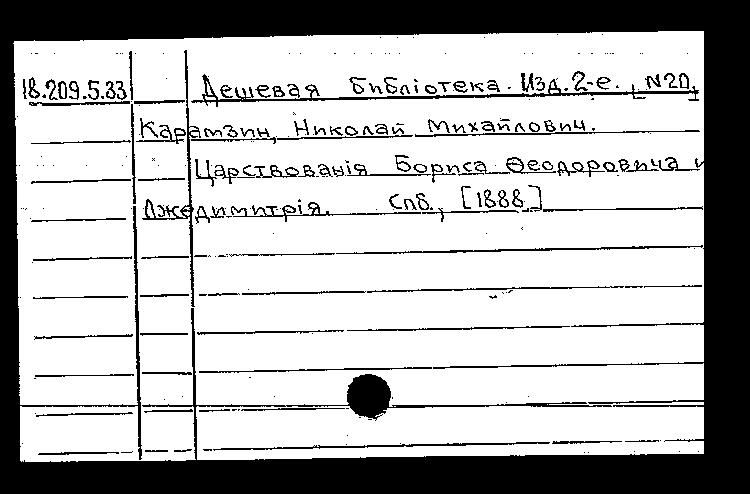 18.209.5.33 Дешевая библіотека. Изд. 2-е. , N20.
Карамзин, Николай Михайлович.
Царствованія Бориса Ѳеодоровича и
Лжедимитрія. Спб., [1888]